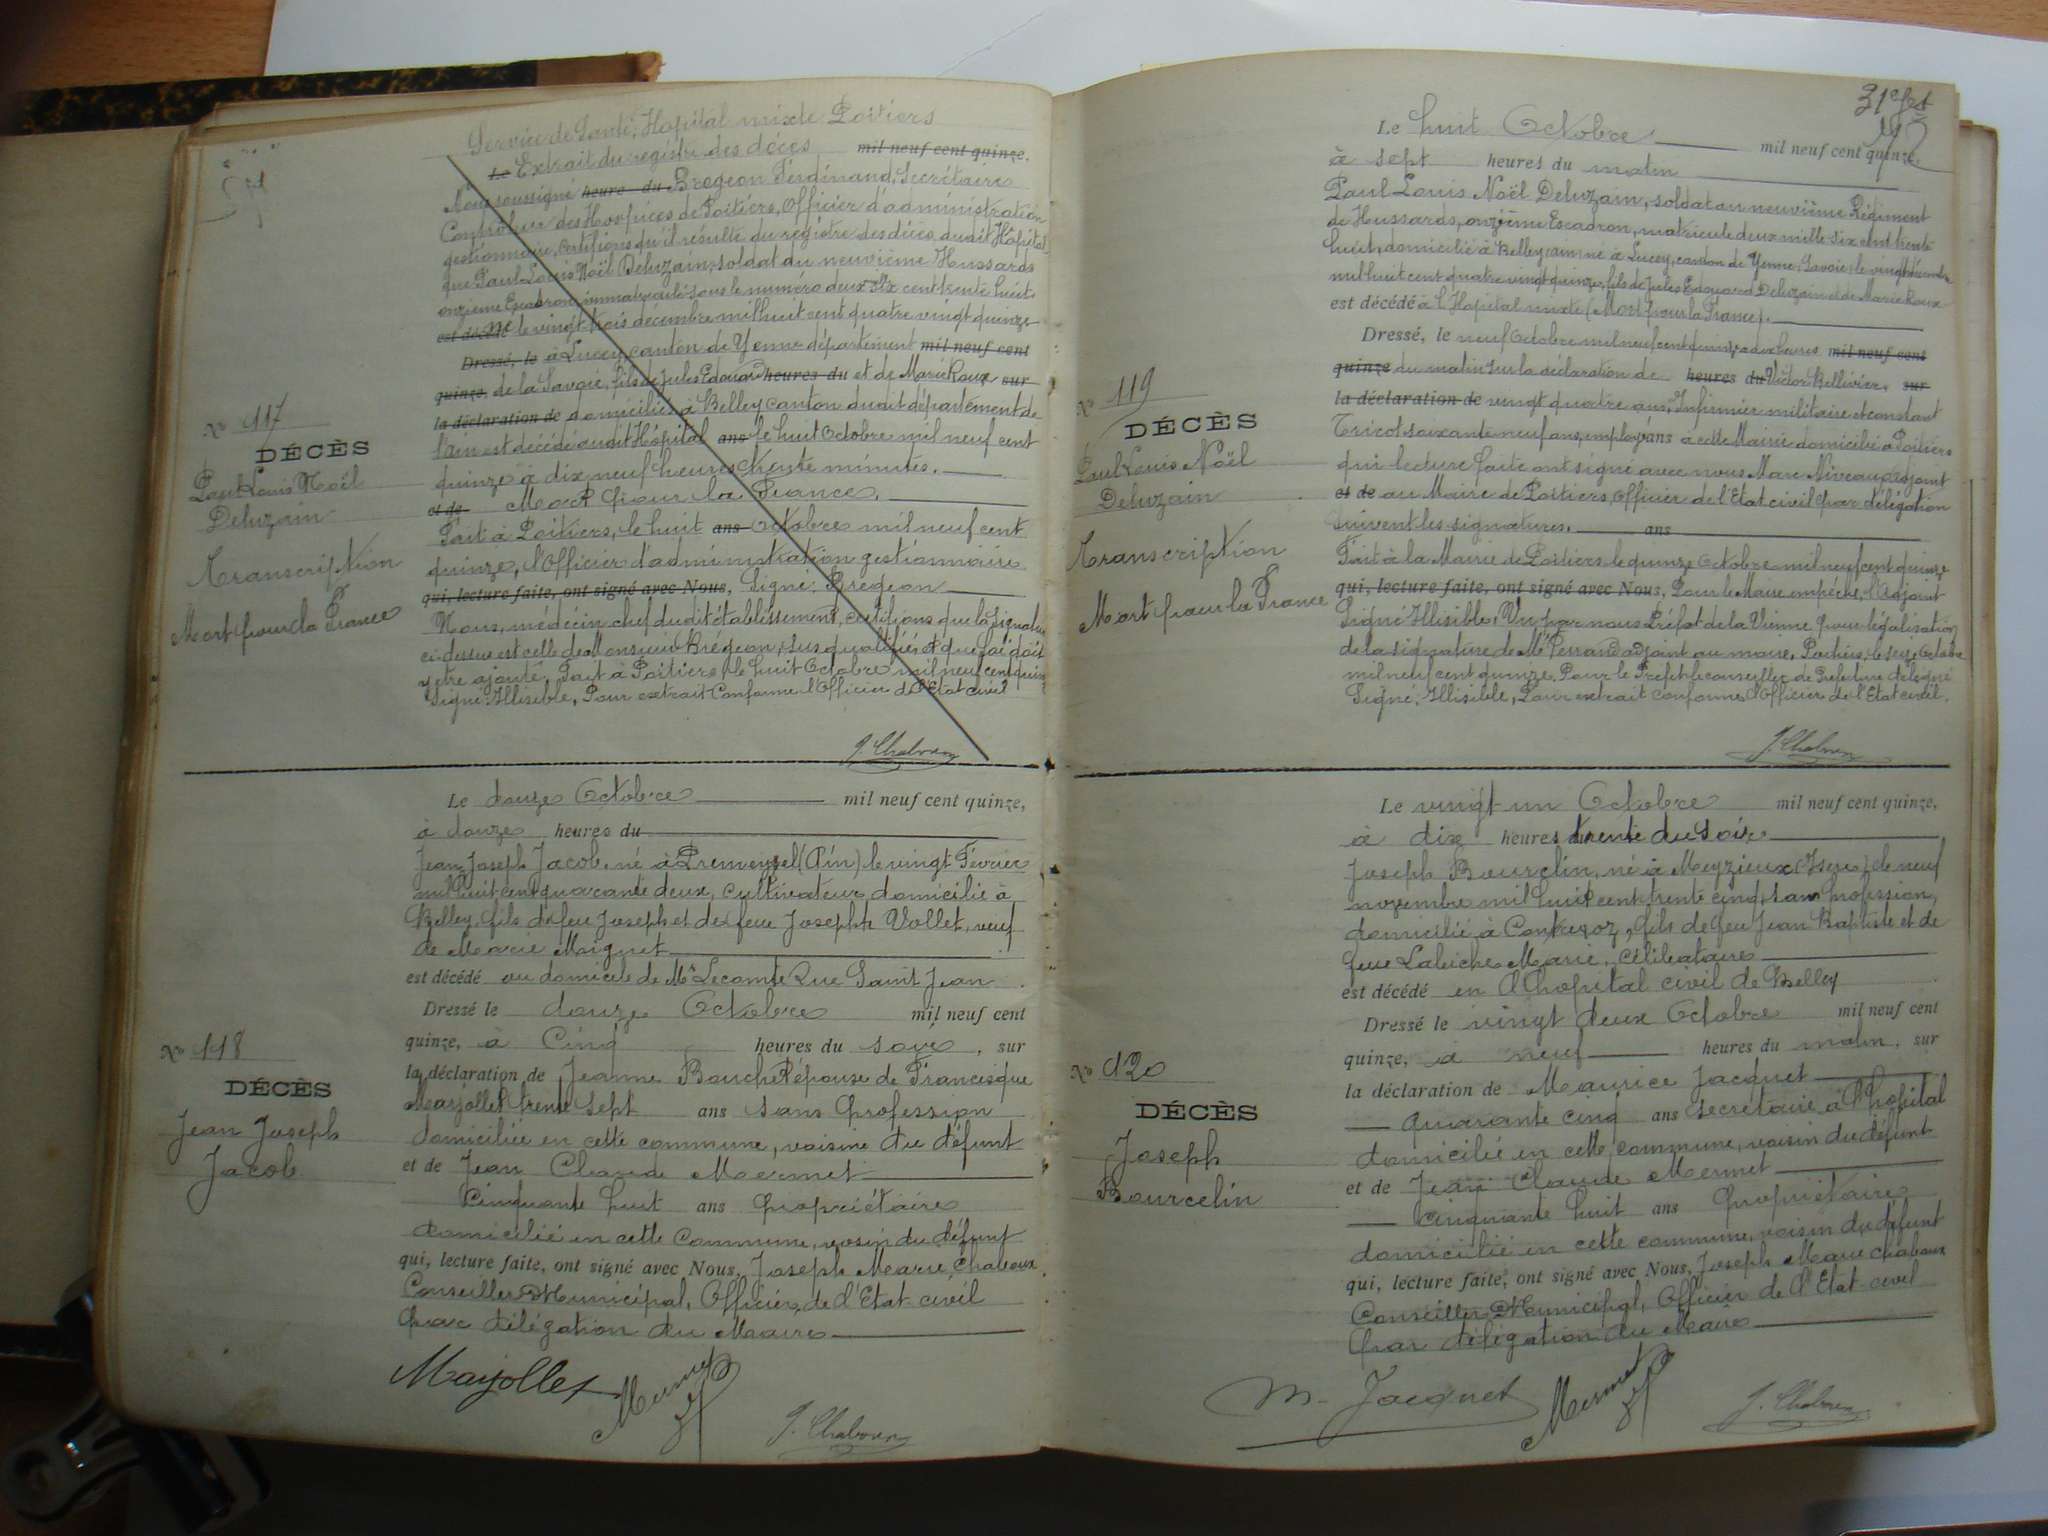 Service de Santé, Hopital mixte Poitiers
Le Extrait du registre des décès mil neuf cent quinze.
Nous soussigné heure du Bregeon Ferdinand, Secrétaire
Contrôleur des Hospices de Poitiers, Officier d'administration
gestionnaire, Certifions qu'il résulte du registre des décès dudit Hopital
que Paul Louis Noël Deluzain, soldat du neuvième Hussards
onzième Escadron immatriculé sous le numéro deux mille six cent trente huit
est décédé né le vingt trois décembre mil huit cent quatre vingt quinze
Dressé, le à Lucey, canton de Yenne département mil neuf cent
quinze, de la Savoie, fils de Jules Edouard heures du et de Marie Roux sur
la déclaration de domicilié à Belley canton dudit département de
l'Ain est décédé audit Hôpital ans le huit Octobre mil neuf cent
quinze à dix neuf heures trente minutes.
et de Mort pour la France.
Fait à Poitiers, le huit ans Octobre mil neuf cent
quinze, l'Officier d'administration gestionnaire
qui, lecture faite, ont signé avec Nous, Signé: Bregeon
Nous, médecin chef dudit établissement, certifions que la signature
ci-dessus est celle de Monsieur Brégeon, sus qualifié et que foi doit
y être ajoutée, Fait à Poitiers, le huit Octobre mil neuf cent quinze
Signé: Illisible, Pour extrait Conforme l'Officier de l'Etat civil
J. Chaboux
No 117
DÉCÈS
Paul Louis Noël
Deluzain
Transcription
Mort pour la France
Le douze Octobre mil neuf cent quinze,
à douze heures du
Jean Joseph Jacob, né à Premeyzel (Ain) le vingt Février
mil huit cent quarante deux, cultivateur domicilié à
Belley, fils de feu Joseph et de feue Josephte Vollet, veuf
de Marie Moignet
est décédé au domicile de Mr Lecomte Rue Saint Jean
Dressé le douze Octobre mil neuf cent
quinze, à Cinq heures du soir, sur
la déclaration de Jeanne Bouchet épouse de Francisque
Marjollet trente sept ans sans profession
domiciliée en cette commune, voisine du défunt
et de Jean Claude Mermet
Cinquante huit ans propriétaire
domicilié en cette Commune, voisin du défunt
qui, lecture faite, ont signé avec Nous, Joseph Marie Chaboux
Conseiller Municipal, Officier de l'Etat civil
par délégation du Maire
Marjollet Mermet J. Chaboux
No 118
DÉCÈS
Jean Joseph
Jacob
31e fet
Le huit Octobre mil neuf cent quinze
à sept heures du matin
Paul Louis Noël Deluzain, soldat au neuvième Régiment
de Hussards, onzième Escadron, matricule deux mille six cent trente
huit, domicilié à Belley, ain, né à Lucey, canton de Yenne, Savoie, le vingt
mil huit cent quatre vingt quinze, fils de Jules Edouard Deluzain et de Marie Roux
est décédé à l'Hopital mixte (Mort pour la France).
Dressé, le neuf Octobre mil neuf cent quinze heures mil neuf cent
quinze du matin sur la déclaration de heures du Victor Bellivier, sur
la déclaration de vingt quatre ans, Infirmier militaire et constant
Tricot soixante neuf ans, employé ans à cette Mairie domiciliés à Poitiers
qui lecture faite ont signé avec nous Marc Niveau adjoint
et de au Maire de Poitiers, Officier de l'Etat civil par délégation
Suivent les signatures. ans
Fait à la Mairie de Poitiers le quinze Octobre mil neuf cent quinze
qui, lecture faite, ont signé avec Nous, Pour le Maire empêché, l'Adjoint
Signé Illisible, Vu par nous Préfet de la Vienne pour légalisation
de la signature de Mr Perraud adjoint au maire, Poitiers, le seize Octobre
mil neuf cent quinze, Pour le Préfet le conseiller de Préfecture délégué
Signé, Illisible, Pour extrait conforme l'Officier de l'Etat civil.
J. Chaboux
No 119
DÉCÈS
Paul Louis Noël
Deluzain
Transcription
Mort pour la France
Le vingt un Octobre mil neuf cent quinze,
à dix heures trente du soir
Joseph Bourcelin, né à Meyzieux (Isère) le neuf
novembre mil huit cent trente cinq, sans profession,
domicilié à Contrevoz, fils de feu Jean Baptiste et de
feue Labiche Marie, célibataire
est décédé en l'hopital civil de Belley
Dressé le vingt deux Octobre mil neuf cent
quinze, à neuf heures du matin, sur
la déclaration de Maurice Jacquet
quarante cinq ans secrétaire à l'hopital
domicilié en cette commune, voisin du défunt
et de Jean Claude Mermet
cinquante huit ans propriétaire
domicilié en cette commune, voisin du défunt
qui, lecture faite, ont signé avec Nous, Joseph Marie Chaboux
Conseiller Municipal, Officier de l'Etat civil
par délégation du Maire
M. Jacquet Mermet J. Chaboux
No 120
DÉCÈS
Joseph
Bourcelin